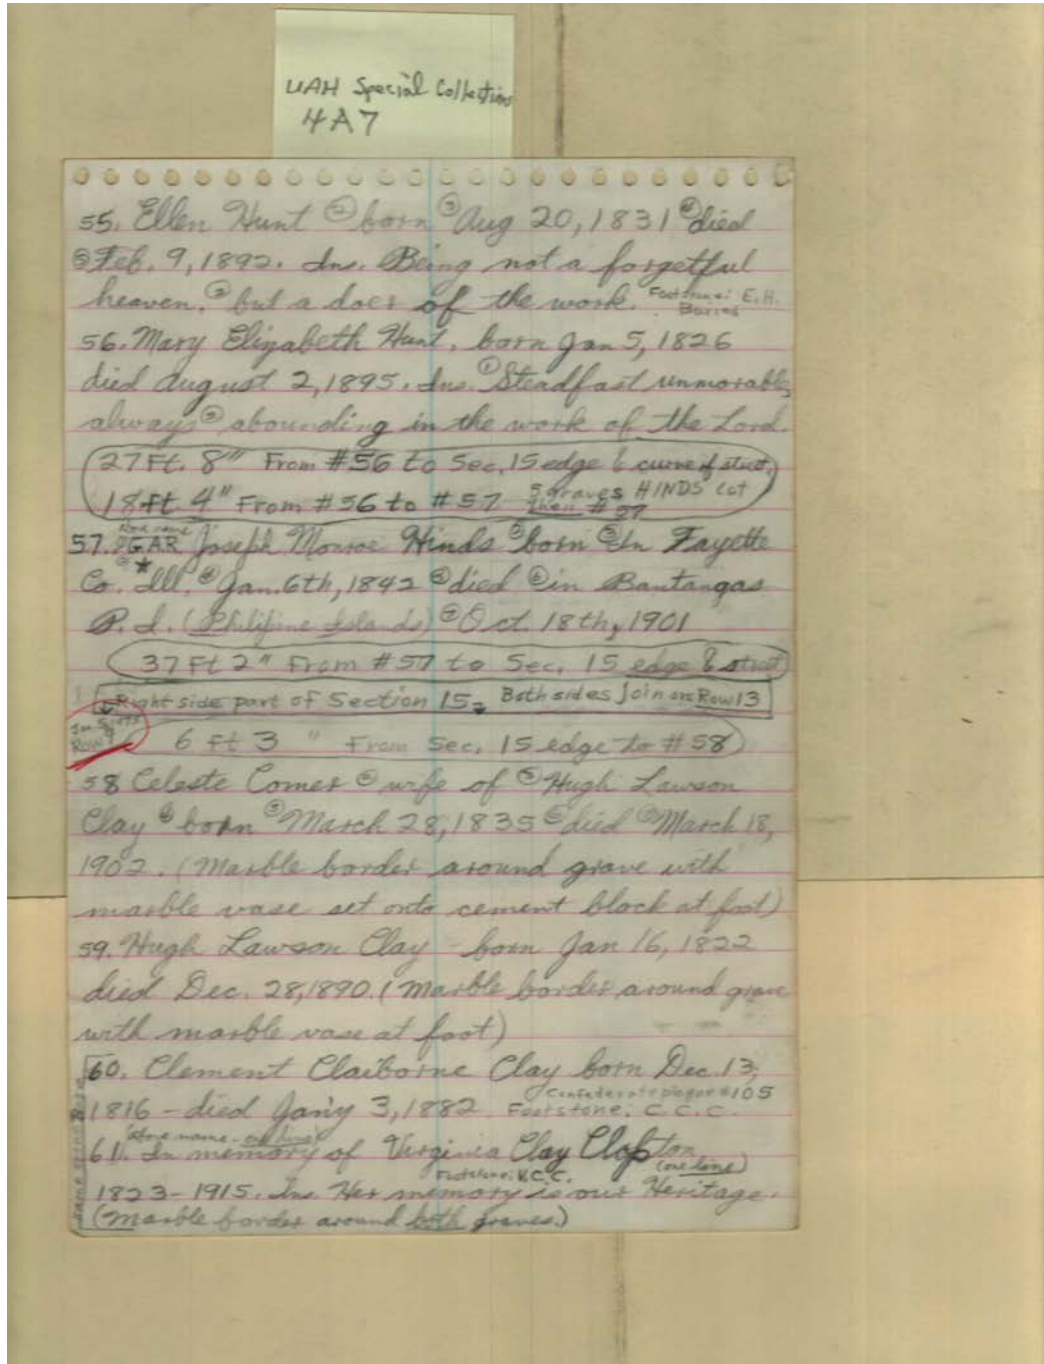 UAH Special Collections
4A7
55. Ellen Hunt ② born ③ Aug 20, 1831 ④ died
⑤ Feb. 9, 1892. Ins. Being not a forgetful
heaven. ② but a doer of the work. Footstone: E.H.
Buried
56. Mary Elizabeth Hunt. born Jan 5, 1826
died August 2, 1895. Ins. ① Steadfast unmovable
always ② abounding in the work of the Lord.
27 Ft. 8" From #56 to Sec. 15 edge & curve of street.
18 ft. 4" From #56 to #57 5 graves HINDS Lot
then #57
57. GAR Joseph Monroe Hinds ② born ③ In Fayette
Co. Ill. ④ Jan. 6th, 1842 ⑤ died ⑥ in Bantangas
P.I. (Philipine Islands) ⑦ Oct. 18th, 1901
37 Ft 2" From #57 to Sec. 15 edge & street
Right side part of Section 15 Both sides join on Row 13
ROW
6 Ft 3 " From Sec. 15 edge to #58
58 Celeste Comer ② wife of ③ Hugh Lawson
Clay ④ born ⑤ March 28, 1835 ⑥ died ⑦ March 18,
1902. (Marble border around grave with
marble vase set onto cement block at foot)
59. Hugh Lawson Clay - born Jan 16, 1822
died Dec. 28, 1890. (Marble border around grave
with marble vase at foot)
60. Clement Claiborne Clay born Dec. 13,
Confederate plaque #105
1816 - died Jan'y 3, 1882. Footstone: C.C.C.
(Stone name - one line)
61. In memory of Virginia Clay Clopton
Footstone: V.C.C. (one line)
1823 - 1915. Ins. Her memory is our Heritage.
(Marble border around both graves.)